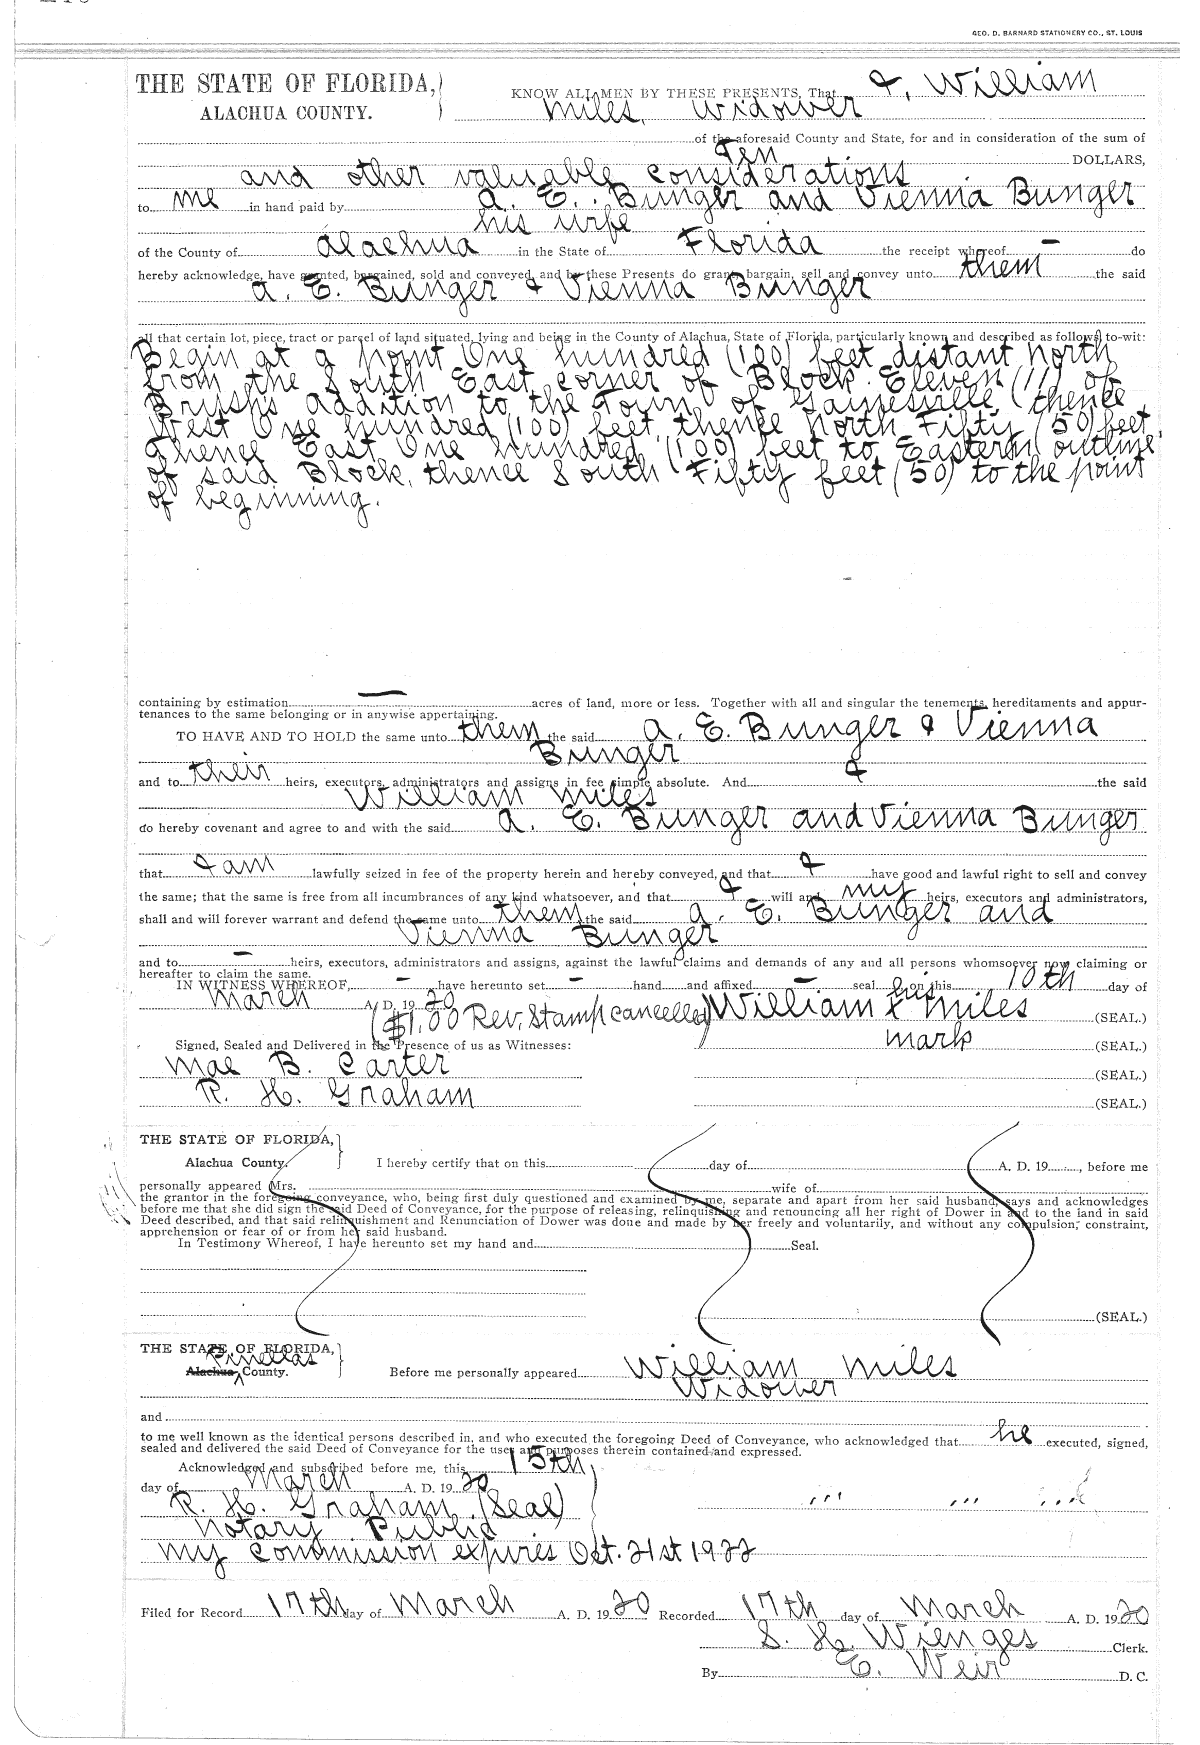 GEO. D. BARNARD STATIONERY CO., ST. LOUIS
THE STATE OF FLORIDA,
ALACHUA COUNTY.
KNOW ALL MEN BY THESE PRESENTS, That I, William
Miles, Widower
of the aforesaid County and State, for and in consideration of the sum of
Ten DOLLARS,
and other valuable considerations
to me in hand paid by A. E. Bunger and Vienna Bunger
his wife
of the County of Alachua in the State of Florida the receipt whereof - do
hereby acknowledge, have granted, bargained, sold and conveyed, and by these Presents do grant, bargain, sell and convey unto them the said
A. E. Bunger & Vienna Bunger
all that certain lot, piece, tract or parcel of land situated, lying and being in the County of Alachua, State of Florida, particularly known and described as follows, to-wit:
Begin at a point One hundred (100) feet distant North
from the South East corner of Block Eleven (11) of
Brush's addition to the Town of Gainesville, thence
West One hundred (100) feet, thence North Fifty (50) feet,
thence East One hundred (100) feet to Eastern outline
of said Block, thence South Fifty feet (50) to the point
of beginning.
containing by estimation - acres of land, more or less. Together with all and singular the tenements, hereditaments and appur-
tenances to the same belonging or in anywise appertaining.
TO HAVE AND TO HOLD the same unto them the said A. E. Bunger & Vienna
Bunger
and to their heirs, executors, administrators and assigns in fee simple absolute. And I the said
William Miles
do hereby covenant and agree to and with the said A. E. Bunger and Vienna Bunger
that I am lawfully seized in fee of the property herein and hereby conveyed, and that I have good and lawful right to sell and convey
the same; that the same is free from all incumbrances of any kind whatsoever, and that I will and my heirs, executors and administrators,
shall and will forever warrant and defend the same unto them the said A. E. Bunger and
Vienna Bunger
and to - heirs, executors, administrators and assigns, against the lawful claims and demands of any and all persons whomsoever now claiming or
hereafter to claim the same.
IN WITNESS WHEREOF, - have hereunto set - hand and affixed - seal on this 10th day of
March A. D. 1920
($1.00 Rev. Stamp cancelled) William his x Miles (SEAL.)
mark (SEAL.)
Signed, Sealed and Delivered in the Presence of us as Witnesses:
Mae B. Carter (SEAL.)
R. H. Graham (SEAL.)
THE STATE OF FLORIDA,
Alachua County. I hereby certify that on this day of A. D. 19 , before me
personally appeared Mrs. wife of
the grantor in the foregoing conveyance, who, being first duly questioned and examined by me, separate and apart from her said husband, says and acknowledges
before me that she did sign the said Deed of Conveyance, for the purpose of releasing, relinquishing and renouncing all her right of Dower in and to the land in said
Deed described, and that said relinquishment and Renunciation of Dower was done and made by her freely and voluntarily, and without any compulsion, constraint,
apprehension or fear of or from her said husband.
In Testimony Whereof, I have hereunto set my hand and Seal.
(SEAL.)
THE STATE OF FLORIDA,
Pinellas
Alachua County. Before me personally appeared William Miles
Widower
and
to me well known as the identical persons described in, and who executed the foregoing Deed of Conveyance, who acknowledged that he executed, signed,
sealed and delivered the said Deed of Conveyance for the uses and purposes therein contained and expressed.
Acknowledged and subscribed before me, this 15th
day of March A. D. 1920
R. H. Graham (Seal)
Notary Public
My commission expires Oct. 21st 1922
Filed for Record 17th day of March A. D. 1920 Recorded 17th day of March A. D. 1920
S. H. Wienges Clerk.
By E. Weir D. C.